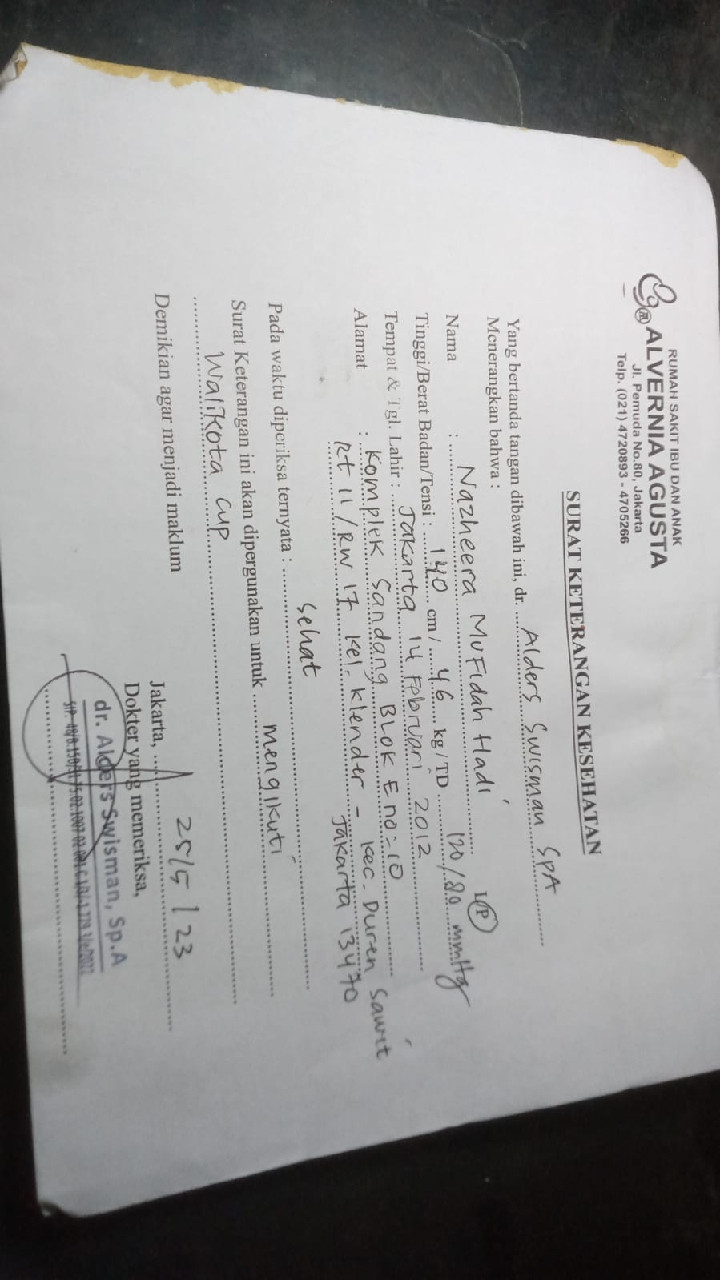 RUMAH SAKIT IBU DAN ANAK
ALVERNIA AGUSTA
Jl. Pemuda No.80, Jakarta
Telp. (021) 4720893 - 4705266
SURAT KETERANGAN KESEHATAN
Yang bertanda tangan dibawah ini, dr. Alders Swisman SpA
Menerangkan bahwa :
Nama : Nazheera Mufidah Hadi L/P
Tinggi/Berat Badan/Tensi : 140 cm / 46 kg / TD 120/80 mmHg
Tempat & Tgl. Lahir : Jakarta 14 Februari 2012
Alamat : Komplek Sandang Blok E no=10
Rt 11 / RW 17 Kel. Klender - Kec. Duren Sawit
Jakarta 13470
Pada waktu diperiksa ternyata : Sehat
Surat Keterangan ini akan dipergunakan untuk mengikuti
Walikota Cup
Demikian agar menjadi maklum
Jakarta, 25/5/23
Dokter yang memeriksa,
dr. Alders Swisman, Sp.A